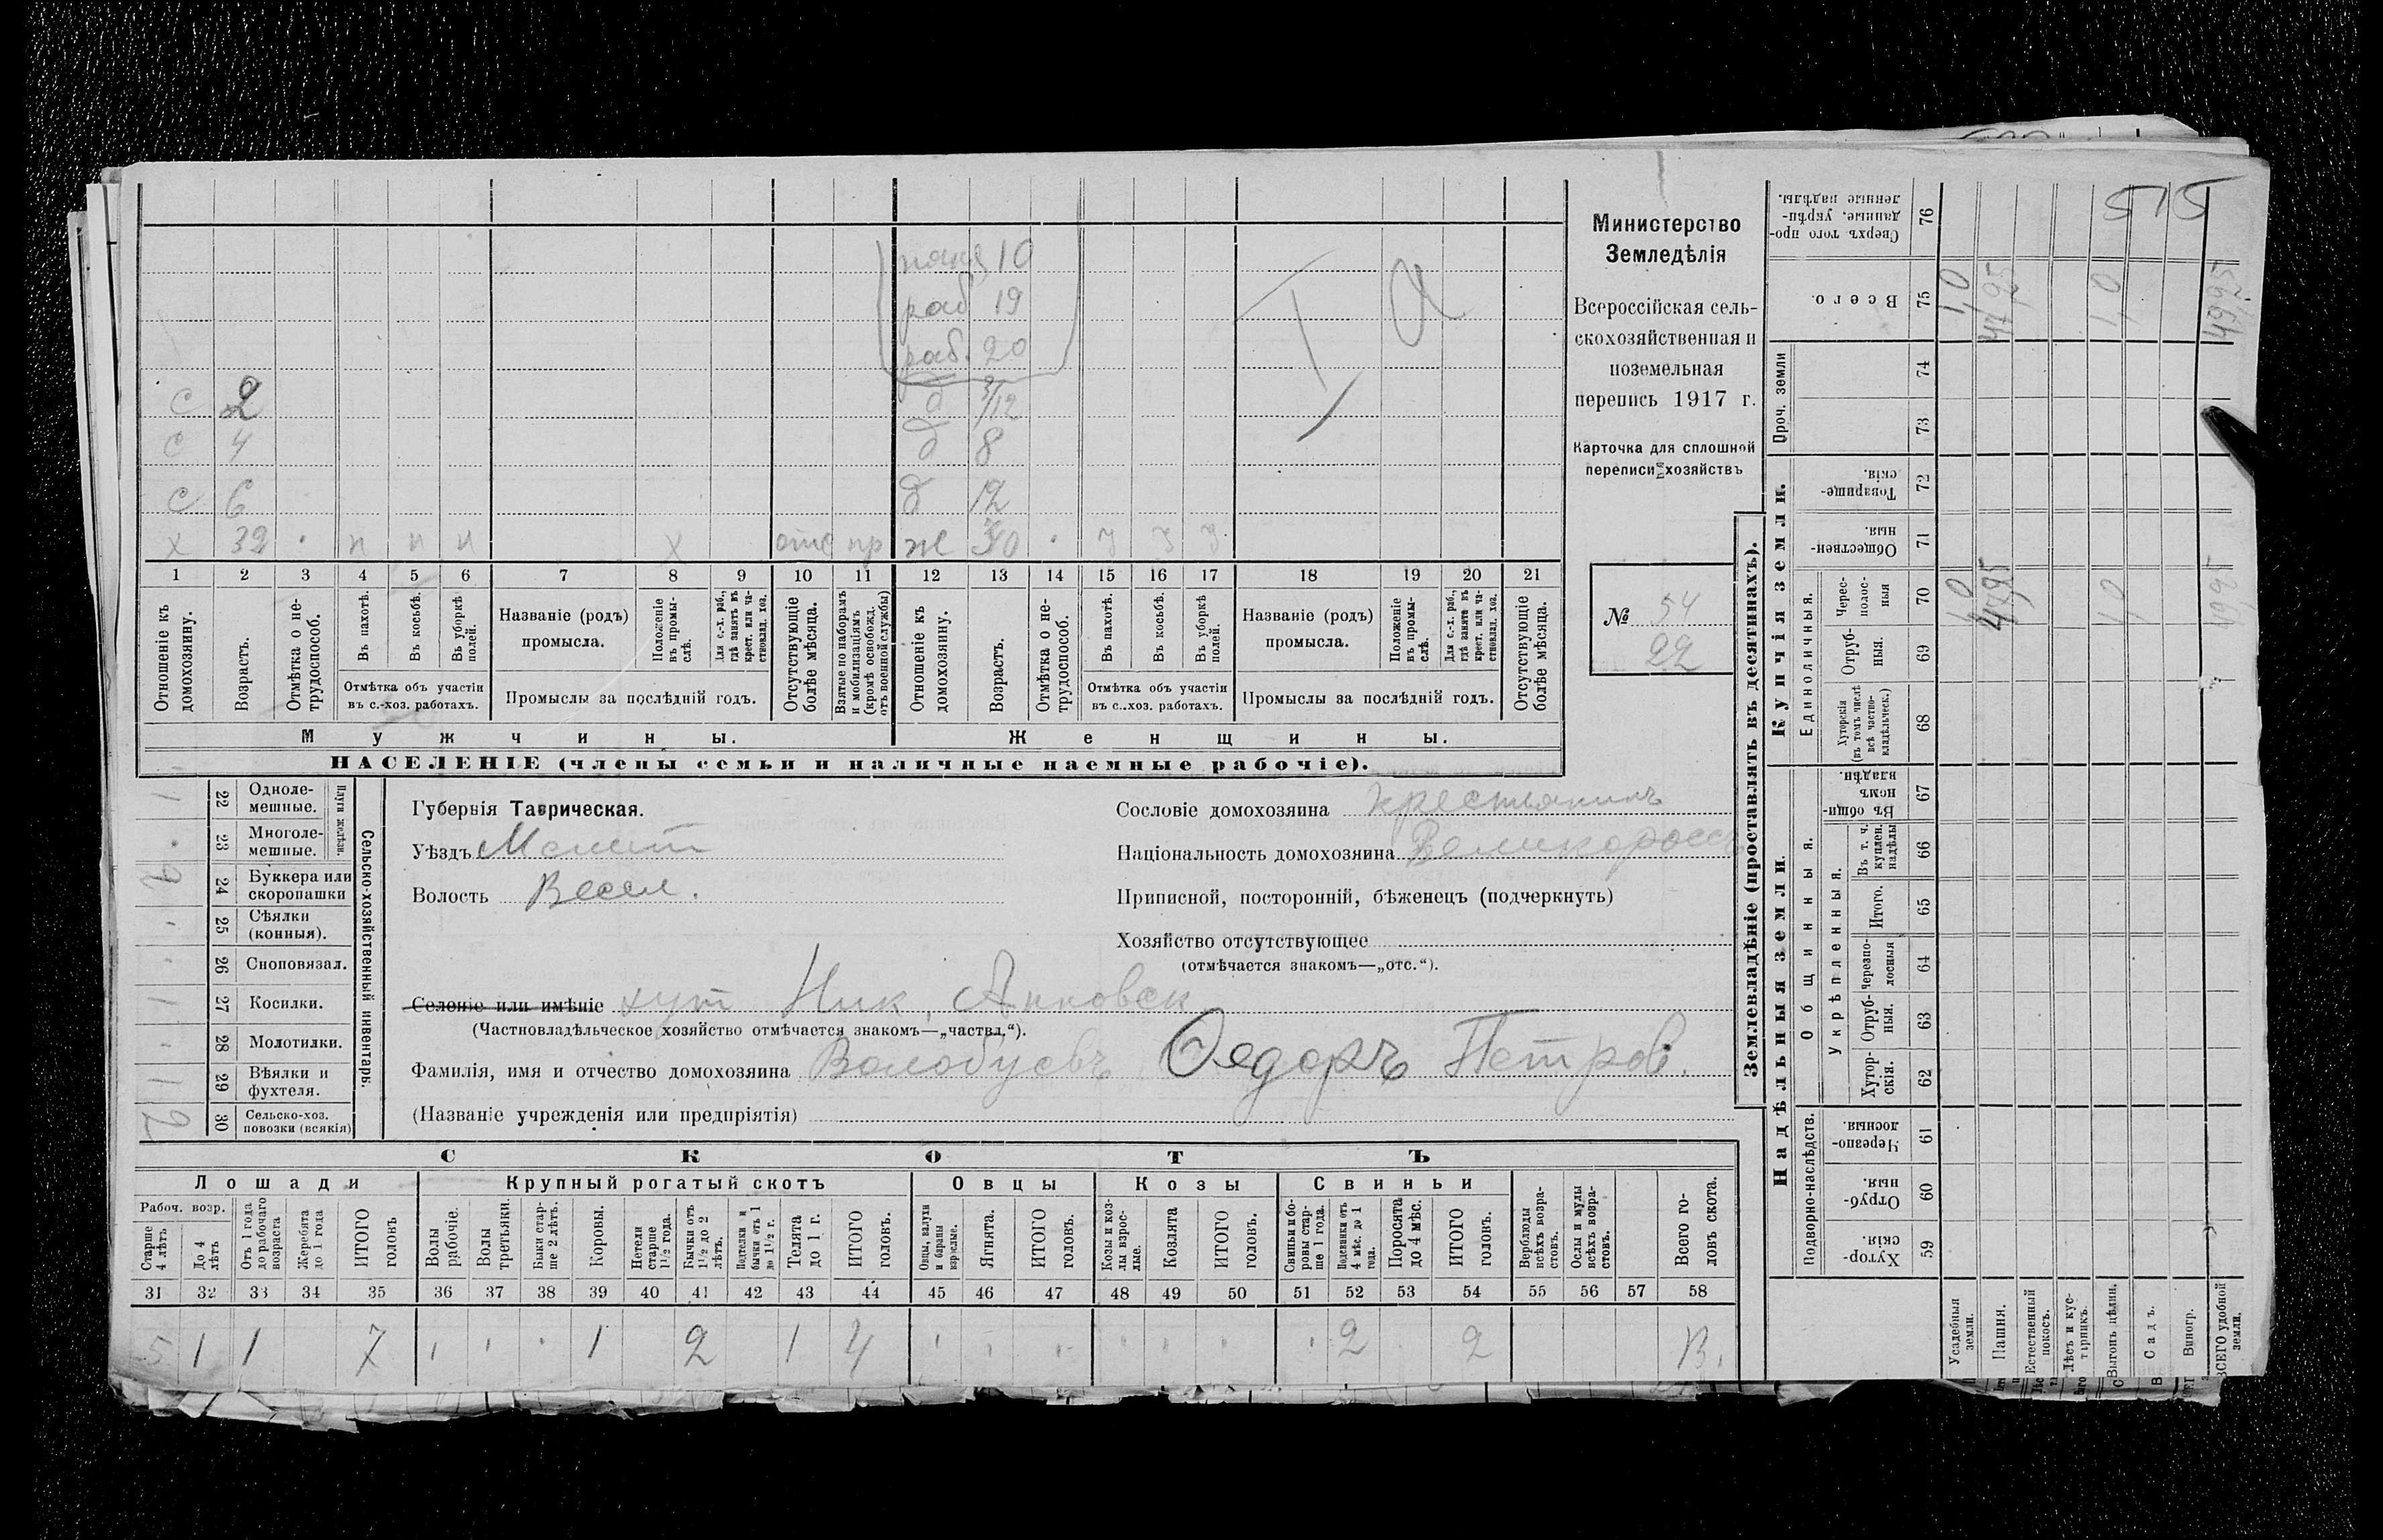 Министерство
Земледѣлія
Всероссійская сель-
скохозяйственная и
поземельная
перепись 1917 г.
Карточка для сплошной
переписи хозяйствъ
№ 54
22
наня 10
раб 19
раб. 20
с 2 д 3/12
с 4 д 8
с 6 д 12
х 39 п п п х отс пр ж 30 з з з
1 2 3 4 5 6 7 8 9 10 11 12 13 14 15 16 17 18 19 20 21
Отношеніе къ домохозяину.
Возрастъ.
Отмѣтка о не-трудоспособ.
Въ пахотѣ.
Въ косьбѣ.
Въ уборкѣ полей.
Отмѣтка объ участіи въ с.-хоз. работахъ.
Названіе (родъ) промысла.
Положеніе въ промы-слѣ.
Для с.-х. раб., гдѣ занятъ въ крест. или ча-стновлад. хоз.
Промыслы за послѣдній годъ.
Отсутствующіе болѣе мѣсяца.
Взятые по наборамъ и мобилизаціямъ (кромѣ освобожд. отъ военной службы)
Отношеніе къ домохозяину.
Возрастъ.
Отмѣтка о не-трудоспособ.
Въ пахотѣ.
Въ косьбѣ.
Въ уборкѣ полей.
Отмѣтка объ участіи въ с.-хоз. работахъ.
Названіе (родъ) промысла.
Положеніе въ промы-слѣ.
Для с.-х. раб., гдѣ занята въ крест. или ча-стновлад. хоз.
Промыслы за послѣдній годъ.
Отсутствующіе болѣе мѣсяца.
Мужчины. Женщины.
НАСЕЛЕНІЕ (члены семьи и наличные наемные рабочіе).
Сельско-хозяйственный инвентарь.
Плуги желѣзн.
22 Одноле-мешные. 1
23 Многоле-мешные.
24 Буккера или скоропашки 2
25 Сѣялки (конныя).
26 Сноповязал.
27 Косилки. 1
28 Молотилки.
29 Вѣялки и фухтеля. 1
30 Сельско-хоз. повозки (всякія) 2
Губернія Таврическая.
Уѣздъ Мелит
Волость Весел.
Сословіе домохозяина крестьянинъ
Національность домохозяина Великороссъ
Приписной, посторонній, бѣженецъ (подчеркнуть)
Хозяйство отсутствующее
(отмѣчается знакомъ—„отс.“).
Селеніе или имѣніе хут Ник.
(Частновладѣльческое хозяйство отмѣчается знакомъ—„частвл.“).
Фамилія, имя и отчество домохозяина Волобуевъ Ѳедоръ Петров.
(Названіе учрежденія или предпріятія)
СКОТЪ
Лошади Крупный рогатый скотъ Овцы Козы Свиньи
Рабоч. возр.
Старше 4 лѣтъ
До 4 лѣтъ
Отъ 1 года до рабочаго возраста
Жеребята до 1 года
ИТОГО головъ
Волы рабочіе.
Волы третьяки.
Быки стар-ше 2 лѣтъ.
Коровы.
Нетели старше 1½ года.
Бычки отъ 1½ до 2 лѣтъ.
Подтелки и бычки отъ 1 до 1½ г.
Телята до 1 г.
ИТОГО головъ.
Овцы, валухи и бараны взрослые.
Ягнята.
ИТОГО головъ.
Козы и коз-лы взрос-лые.
Козлята
ИТОГО головъ.
Свиньи и бо-ровы стар-ше 1 года.
Подсвинки отъ 4 мѣс. до 1 года.
Поросята до 4 мѣс.
ИТОГО головъ.
Верблюды всѣхъ возра-стовъ.
Ослы и мулы всѣхъ возра-стовъ.
Всего го-ловъ скота.
31 32 33 34 35 36 37 38 39 40 41 42 43 44 45 46 47 48 49 50 51 52 53 54 55 56 57 58
5 1 1 7 1 2 1 4 2 2
Землевладѣніе (проставлять въ десятинахъ).
Надѣльныя земли. Купчія земли. Проч. земли
Подворно-наслѣдств. Общинныя. Укрѣпленныя. Единоличныя.
59 Хутор-скія.
60 Отруб-ныя.
61 Черезпо-лосныя.
62 Хутор-скія.
63 Отруб-ныя.
64 черезпо-лосныя
65 Итого.
66 Въ т. ч. куплен. надѣлы
67 Въ общи-номъ владѣн.
68 Хуторскія (въ томъ числѣ всѣ частно-владѣльческ.)
69 Отруб-ныя.
70 Черес-полос-ныя
71 Обществен-ныя.
72 Товарище-скія.
73
74
75 Всего.
76 Сверхъ того про-данные, укрѣп-ленные надѣлы.
Усадебныя земли. 1,0 1,0
Пашня. 47,95 47,95
Естественный покосъ.
Лѣсъ и кус-тарникъ.
Выгонъ цѣлин. 1,0 1,0
Садъ.
Виногр.
ВСЕГО удобной земли. 49,95 49,95
515